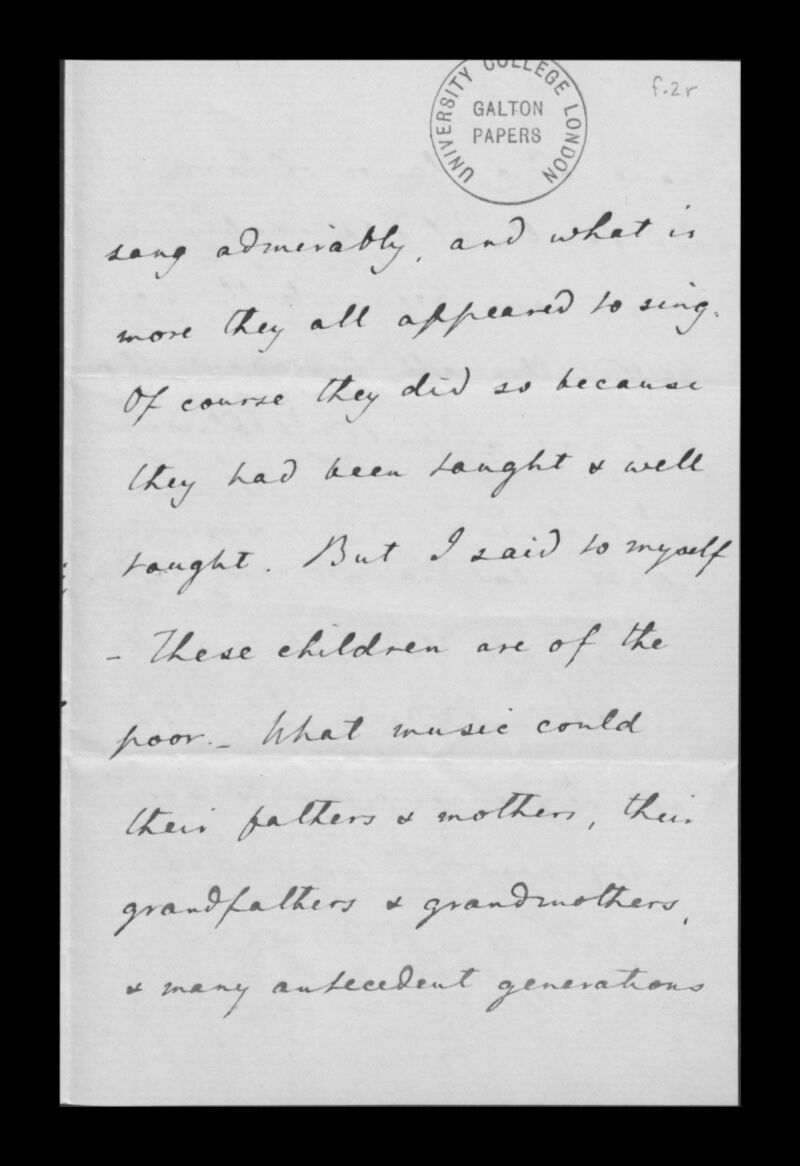 f.2r
UNIVERSITY COLLEGE LONDON
GALTON
PAPERS
sang admirably, and what is
more they all appeared to sing.
Of course they did so because
they had been taught & well
taught. But I said to myself
– These children are of the
poor. – What music could
their fathers & mothers, their
grandfathers & grandmothers,
& many antecedent generations